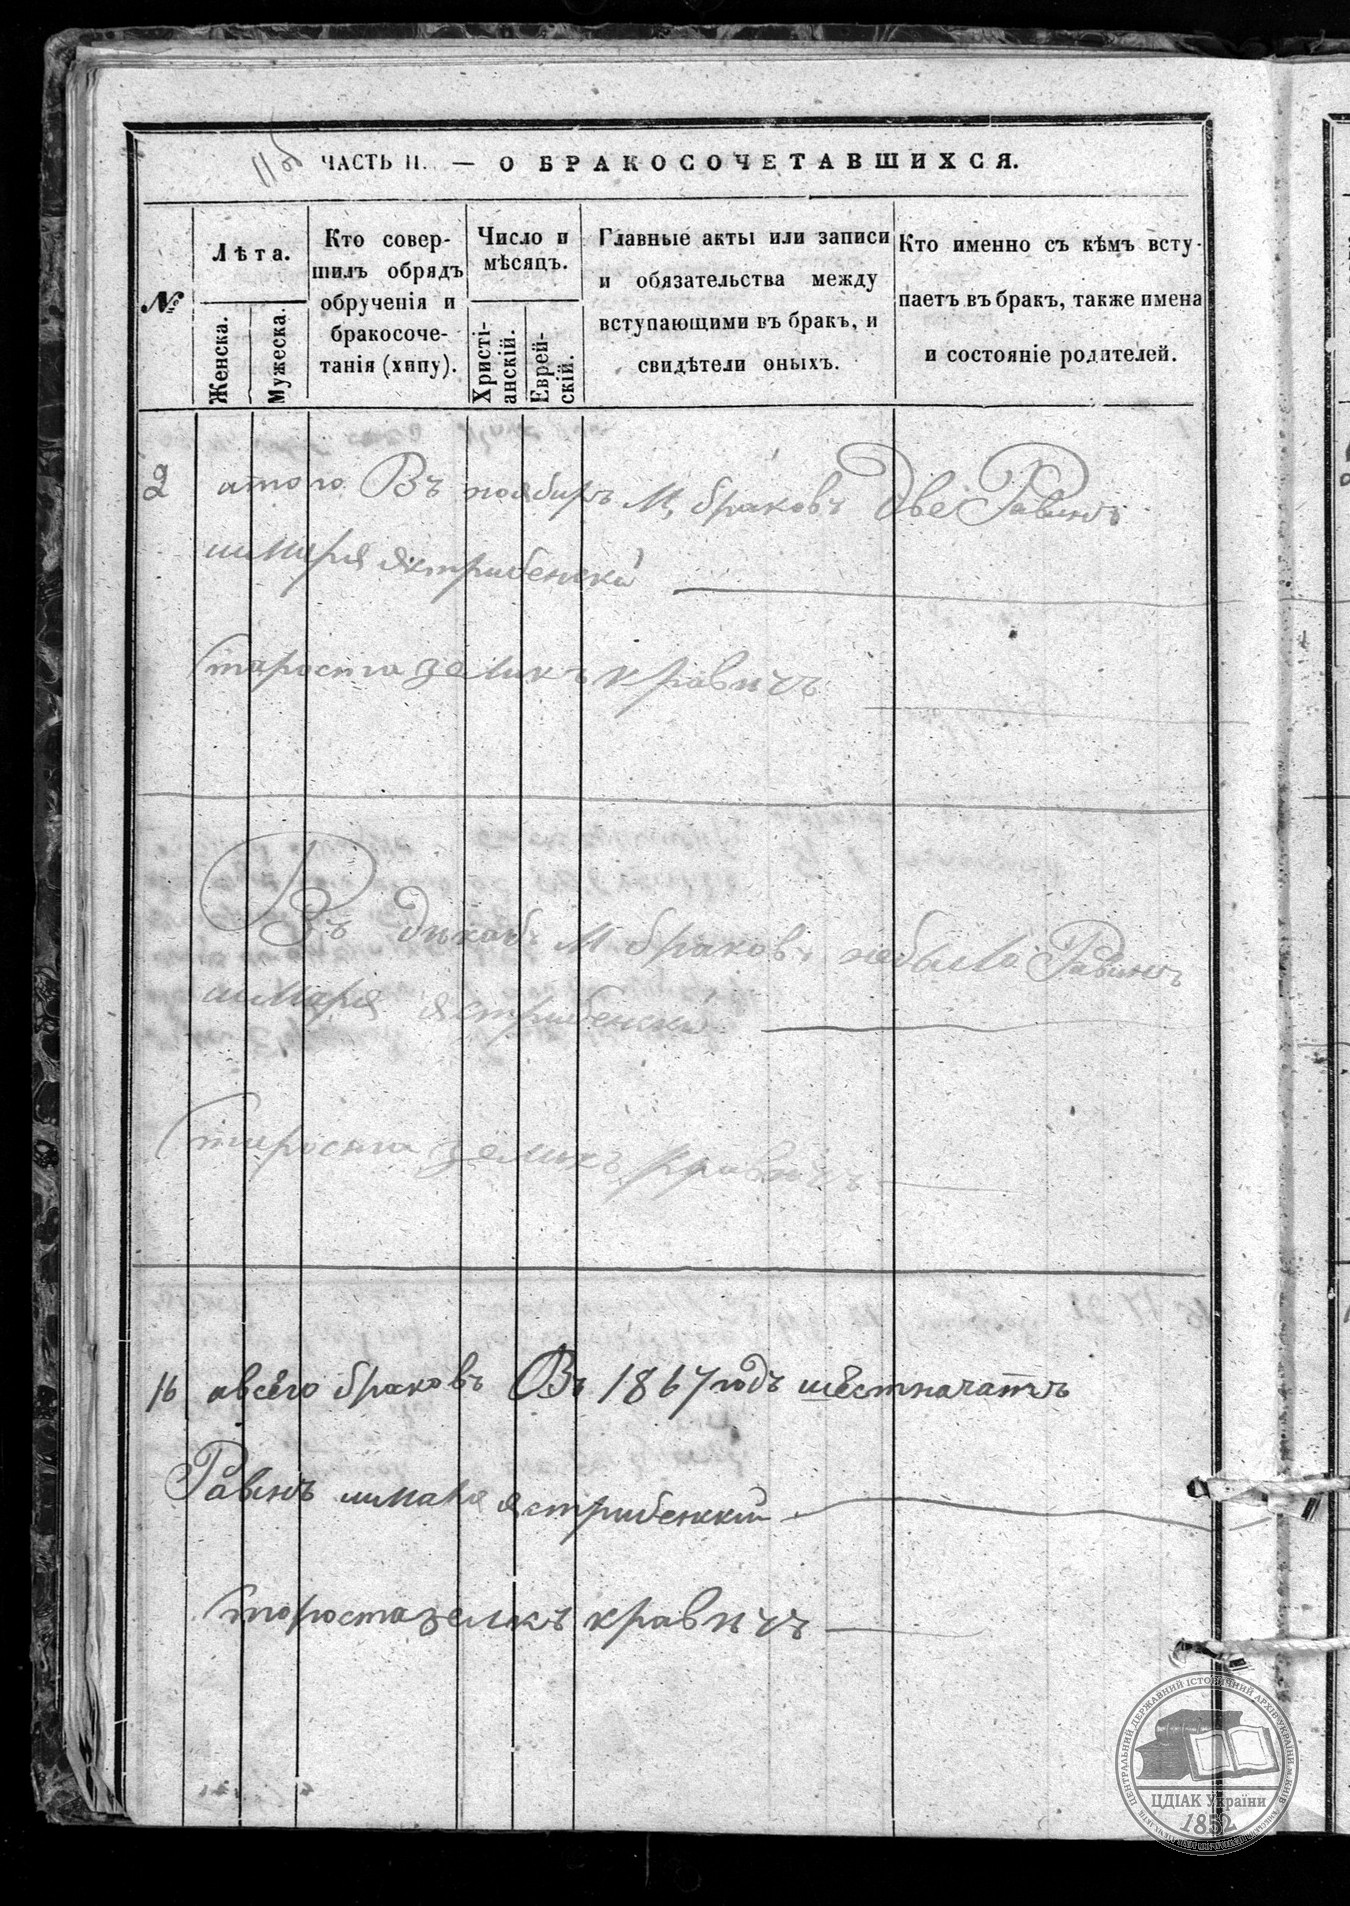 11об
ЧАСТЬ II. — О БРАКОСОЧЕТАВШИХСЯ.
№
Лѣта.
Женска.
Мужеска.
Кто совер-
шилъ обрядъ
обрученія и
бракосоче-
танія (хипу).
Число и
мѣсяцъ.
Христі-
анскій.
Еврей-
скій.
Главные акты или записи
и обязательства между
вступающими въ бракъ, и
свидѣтели оныхъ.
Кто именно съ кѣмъ всту-
паетъ въ бракъ, также имена
и состояніе родителей.
2 атого Въ ноябиръ М, браковъ две Равинъ
шмеря ястрибенски
Староста зеликъ кравичъ
Въ дикаб М браковъ небыло Равинъ
шмеря ястрибенски
Староста зеликъ кравичъ
16 авсего браковъ Въ 1867 годъ шестначатъ
Равинъ шмаря ястрибенкий
Староста зеликъ кравичъ
ЦЕНТРАЛЬНИЙ ДЕРЖАВНИЙ ІСТОРИЧНИЙ АРХІВ УКРАЇНИ, м. КИЇВ
ЦДІАК України
1852